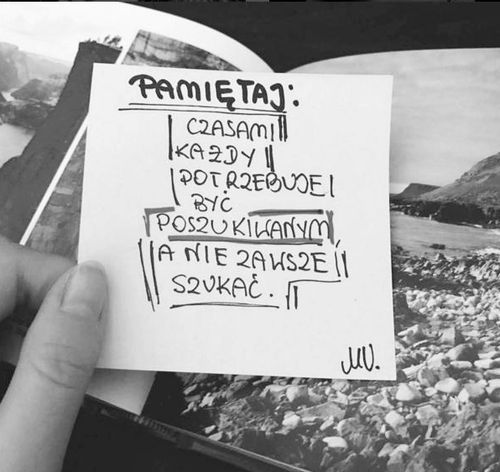 PAMIĘTAJ:
CZASAMI
KAŻDY
POTRZEBUJE
BYĆ
POSZUKIWANYM,
A NIE ZAWSZE
SZUKAĆ.
MV.